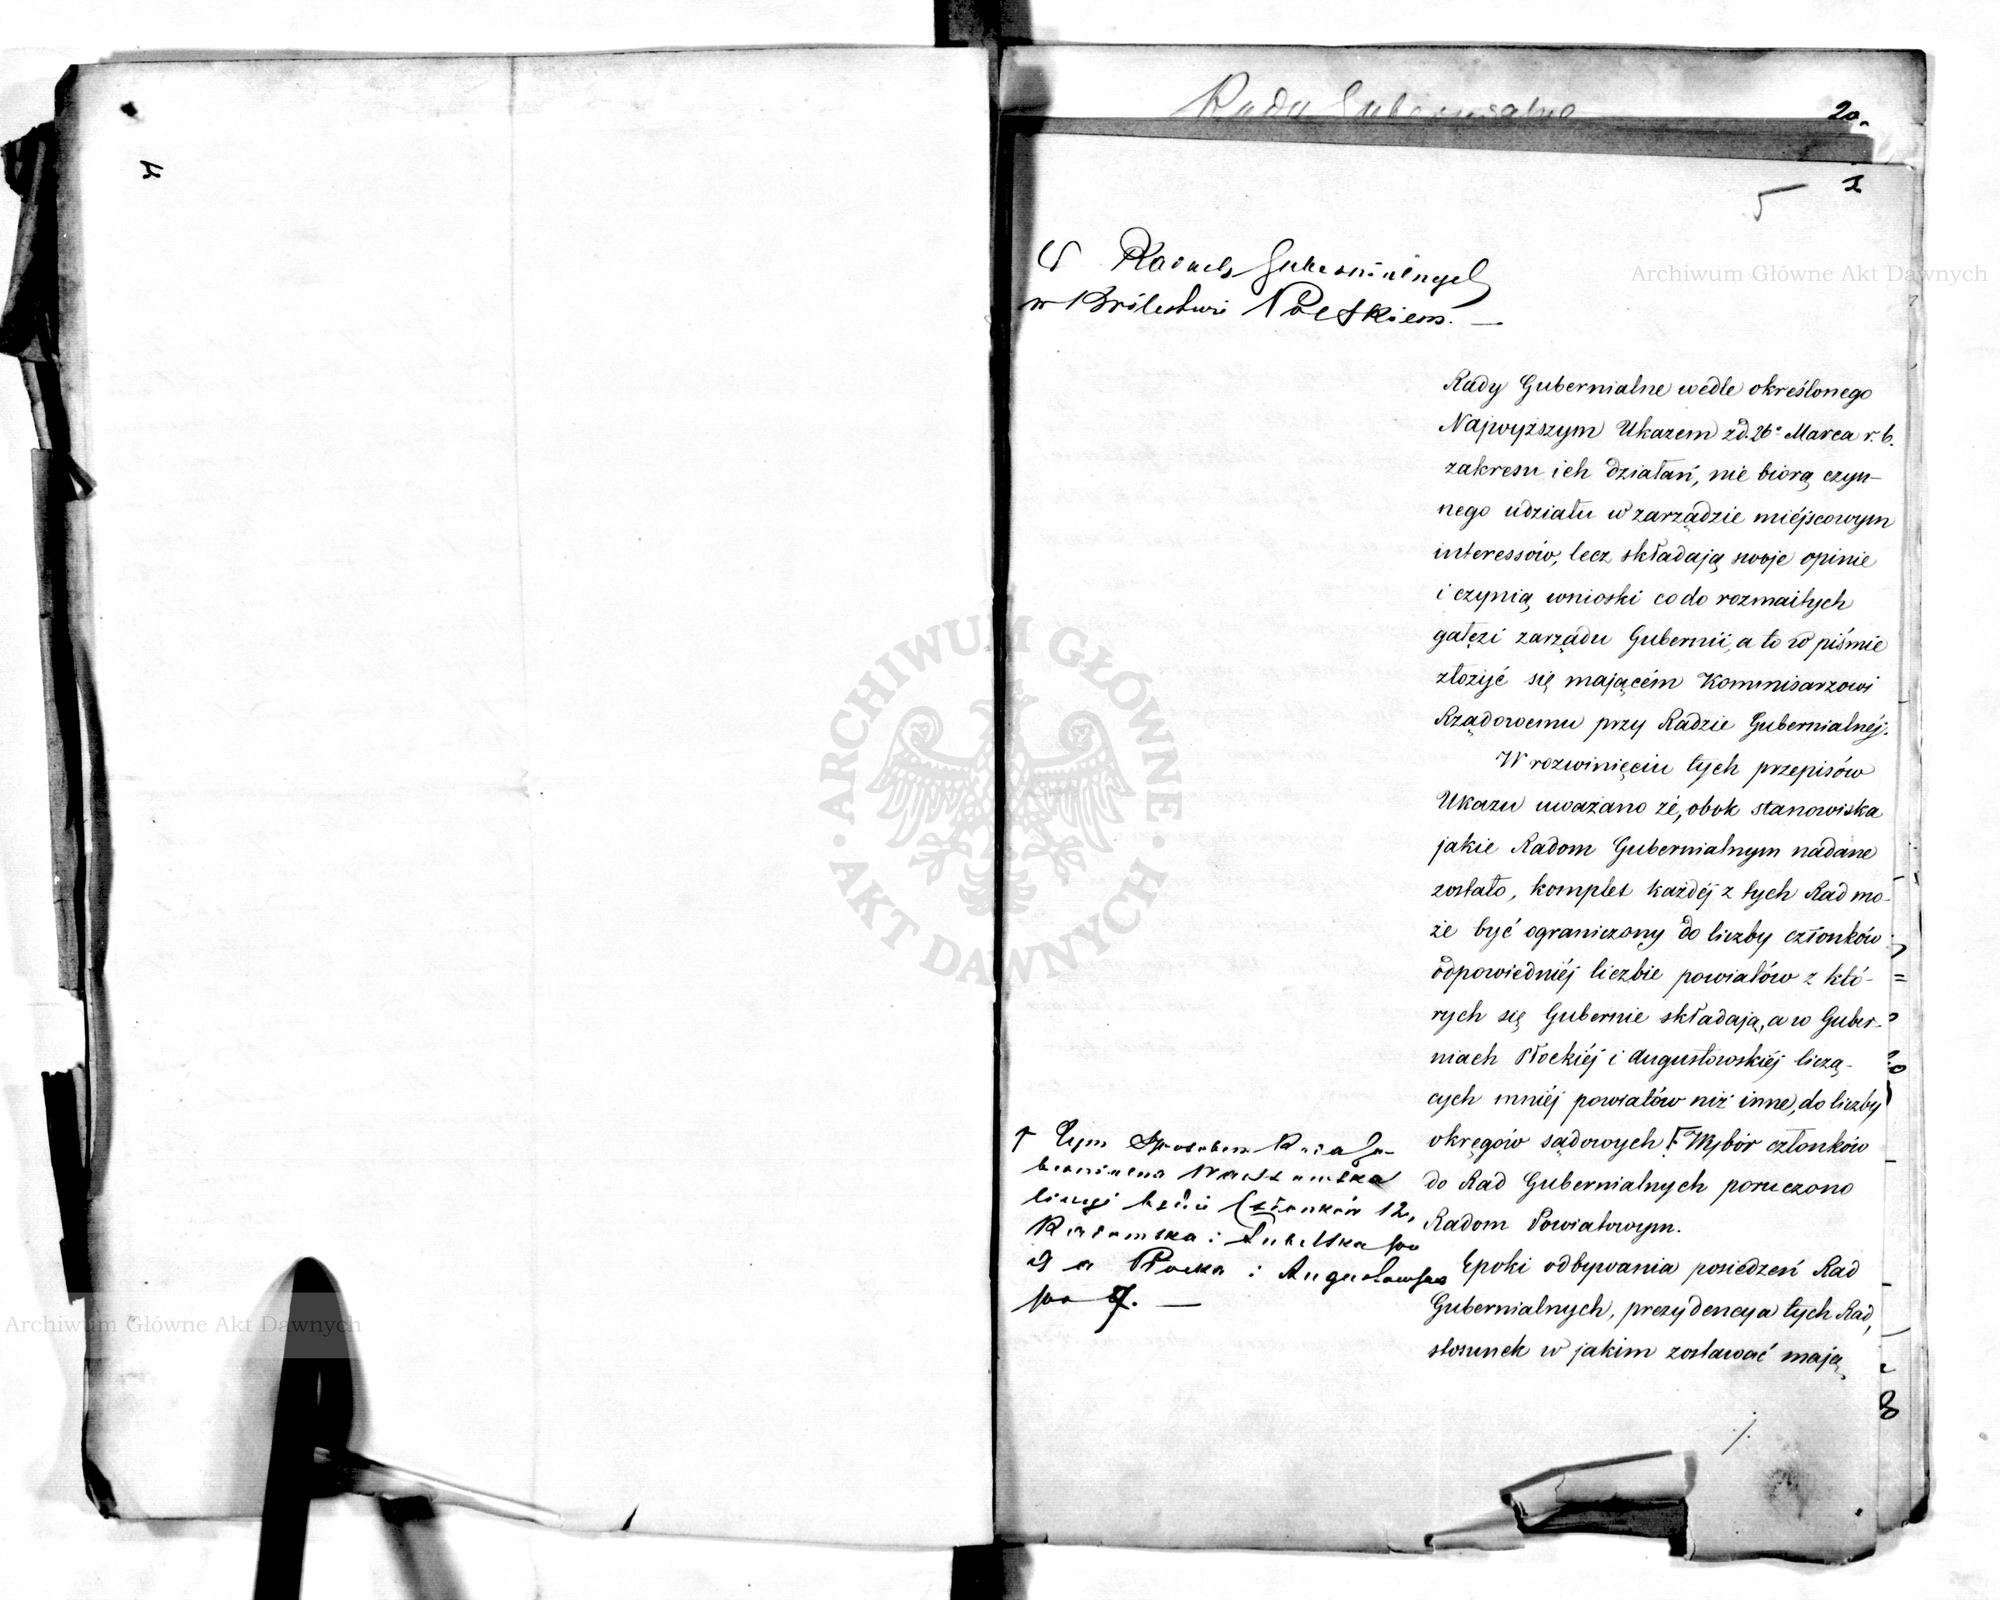 Rada Gubernialna
20.
5
O Radach Gubernialnych
w Królestwie Polskiem. —
Rady Gubernialne wedle określonego
Najwyższym Ukazem z d. 26° Marca r. b.
zakresu ich działań, nie biorą czyn-
nego udziału w zarządzie miéjscowym
interessów, lecz składają swoje opinie
i czynią wnioski co do rozmaitych
gałęzi zarządu Gubernii, a to w piśmie
złożyć się mającém Kommisarzowi
Rządowemu przy Radzie Gubernialnéj.
W rozwinięciu tych przepisów
Ukazu uważano że, obok stanowiska
jakie Radom Gubernialnym nadane
zostało, komplet każdéj z tych Rad mo-
że być ograniczony do liczby członków
odpowiedniéj liczbie powiatów z któ-
rych się Gubernie składają, a w Guber-
niach Płockiéj i Augustowskiéj liczą-
cych mniéj powiatów niż inne, do liczby
okręgów sądowych. Wybór członków
do Rad Gubernialnych poruczono
Radom Powiatowym.
Epoki odbywania posiedzeń Rad
Gubernialnych, prezydencya tych Rad,
stosunek w jakim zostawać mają
Tym sposobem Rada Gu-
bernialna Warszawska
liczyć będzie Członków 12,
Radomska i Lubelska po
a Płocka i Augustowska
po 7. —
Archiwum Główne Akt Dawnych
Archiwum Główne Akt Dawnych
ARCHIWUM GŁÓWNE · AKT DAWNYCH ·